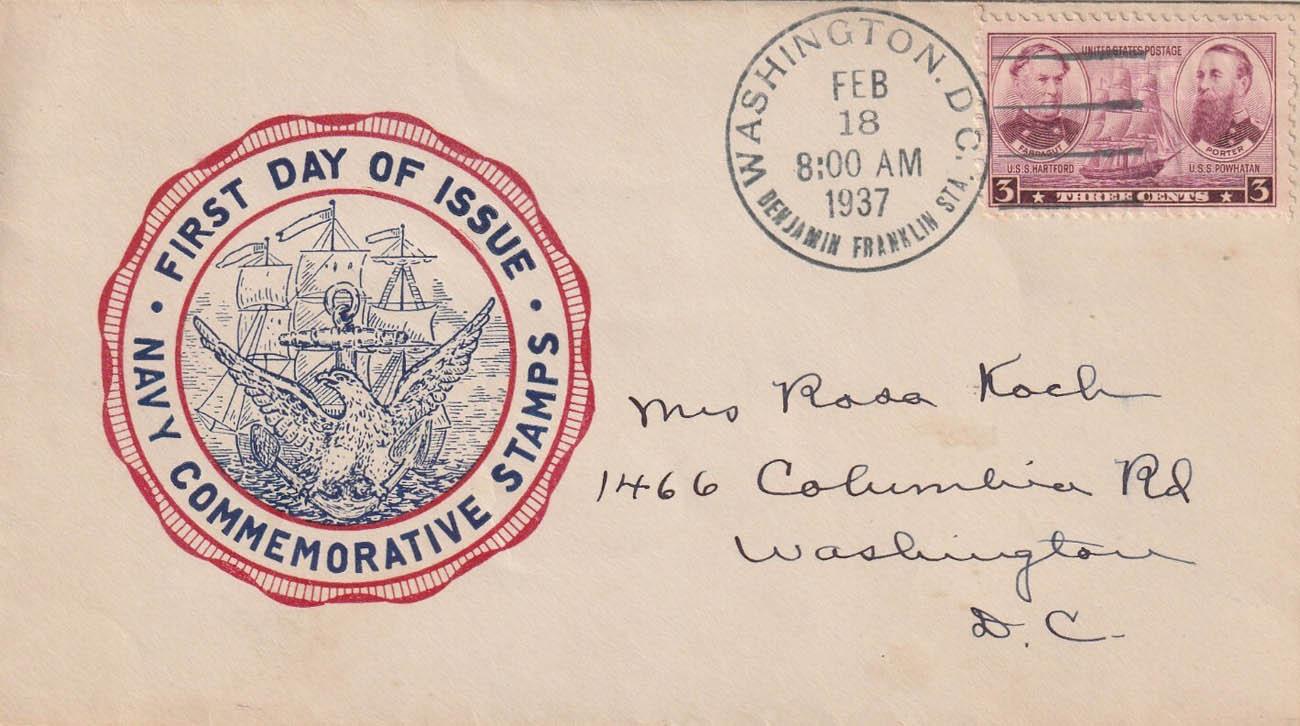 FIRST DAY OF ISSUE
NAVY COMMEMORATIVE STAMPS
WASHINGTON, D.C.
FEB
18
8:00 AM
1937
BENJAMIN FRANKLIN STA.
UNITED STATES POSTAGE
FARRAGUT
PORTER
U.S.S. HARTFORD
U.S.S. POWHATAN
3 THREE CENTS 3
Mrs Rosa Koch
1466 Columbia Rd
Washington
D.C.